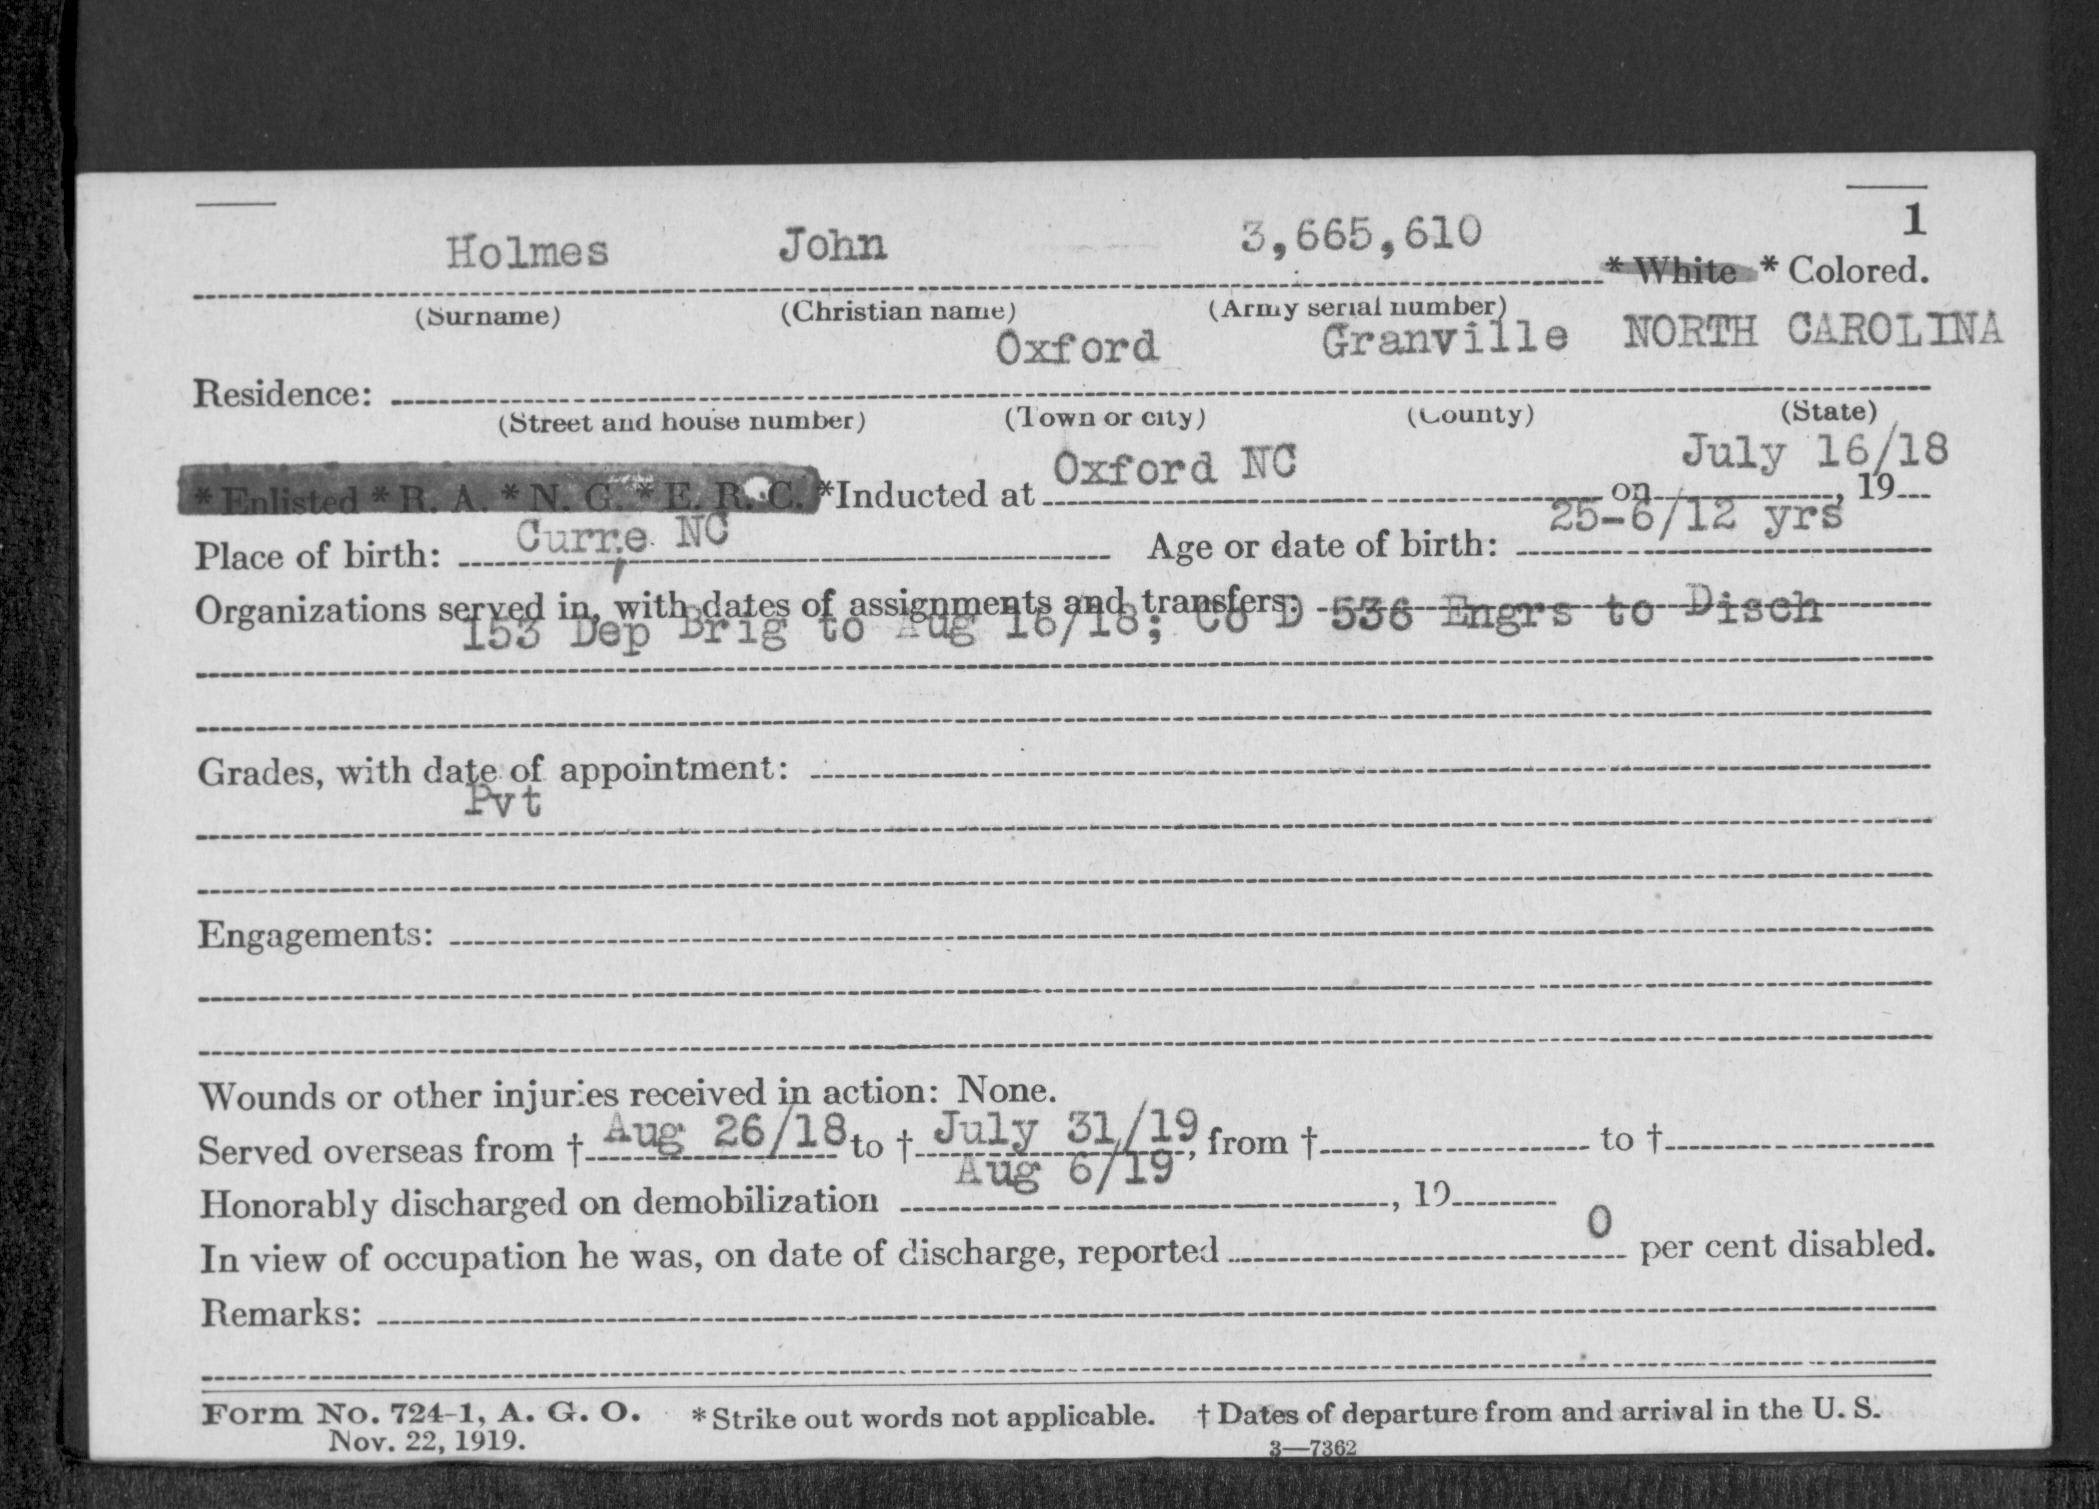 1
Holmes John 3,665,610 * White * Colored.
(Surname) (Christian name) (Army serial number)
Residence: Oxford Granville NORTH CAROLINA
(Street and house number) (Town or city) (County) (State)
* Enlisted * R. A. * N. G. * E. R. C. *Inducted at Oxford NC on July 16/18, 19
Place of birth: Curre, NC Age or date of birth: 25-6/12 yrs
Organizations served in, with dates of assignments and transfers:
153 Dep Brig to Aug 16/18; Co D 536 Engrs to Disch
Grades, with date of appointment:
Pvt
Engagements:
Wounds or other injuries received in action: None.
Served overseas from † Aug 26/18 to † July 31/19, from † to †
Honorably discharged on demobilization Aug 6/19, 19
In view of occupation he was, on date of discharge, reported 0 per cent disabled.
Remarks:
Form No. 724-1, A. G. O. * Strike out words not applicable. † Dates of departure from and arrival in the U. S.
Nov. 22, 1919. 3—7362